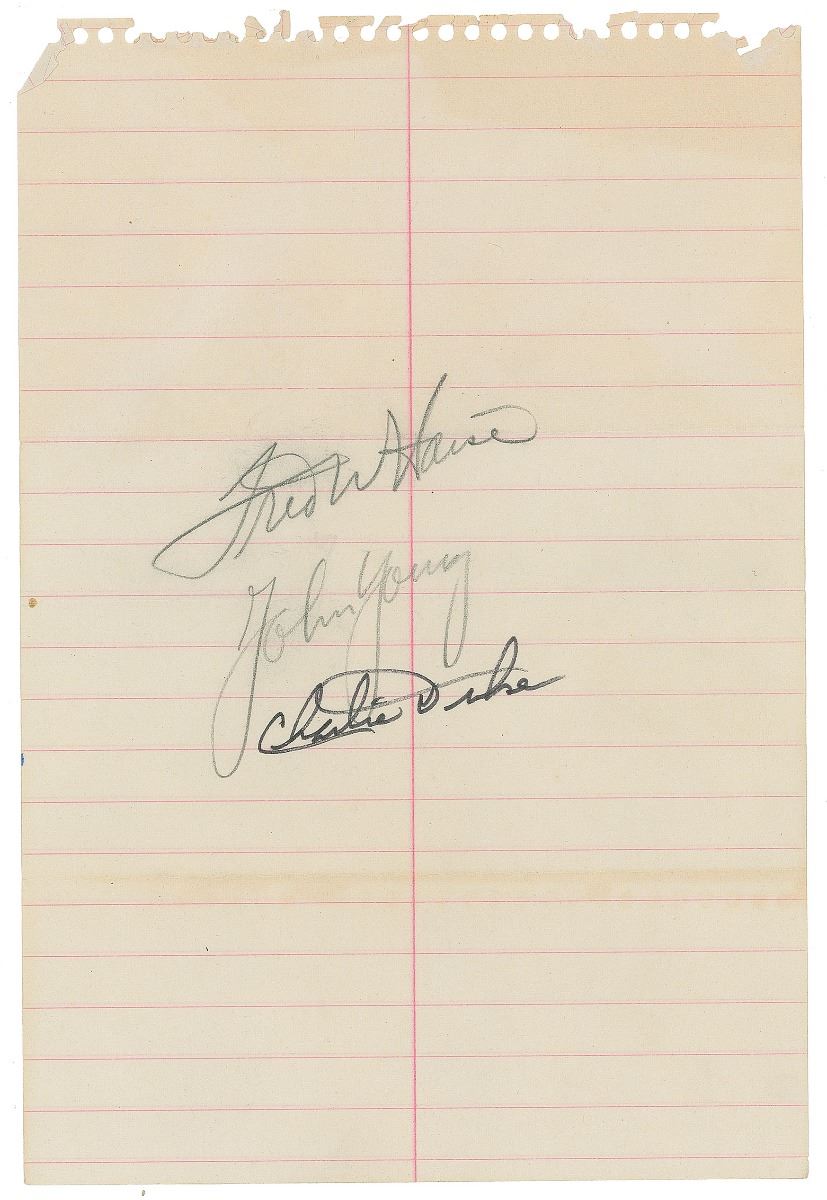 Fred W Haise
John Young
Charlie Duke